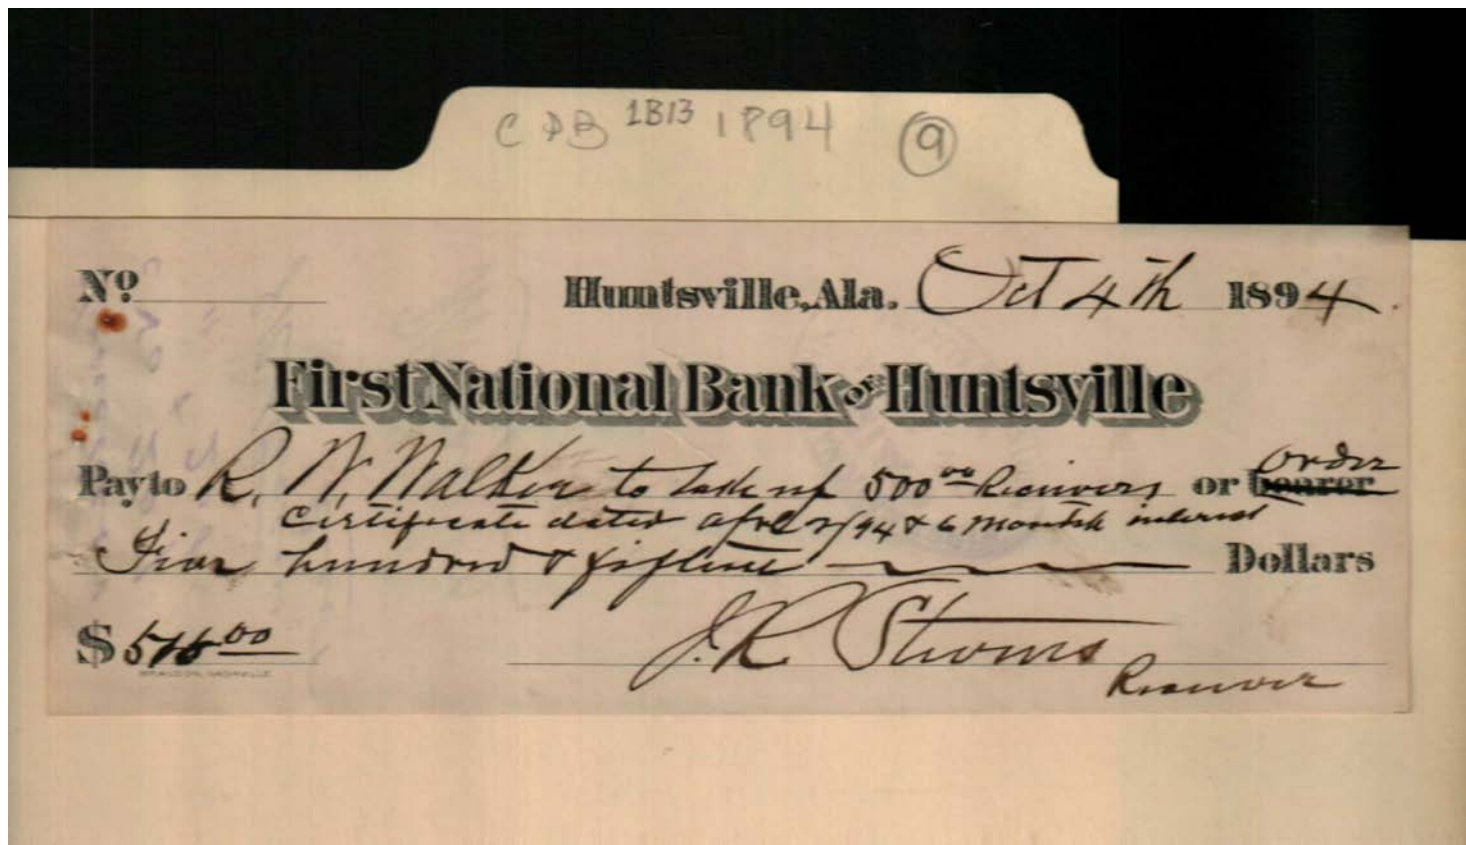 CDB 1B13 1894 9
No
Huntsville, Ala. Oct 4th 1894.
First National Bank of Huntsville
order
Pay to R. W. Walker to take up 500 00 Receivers or bearer
Certificate dated Apl 2/94 & 6 months interest
Five hundred & fifteen Dollars
$ 515 00
J. R. Stevens
Receiver